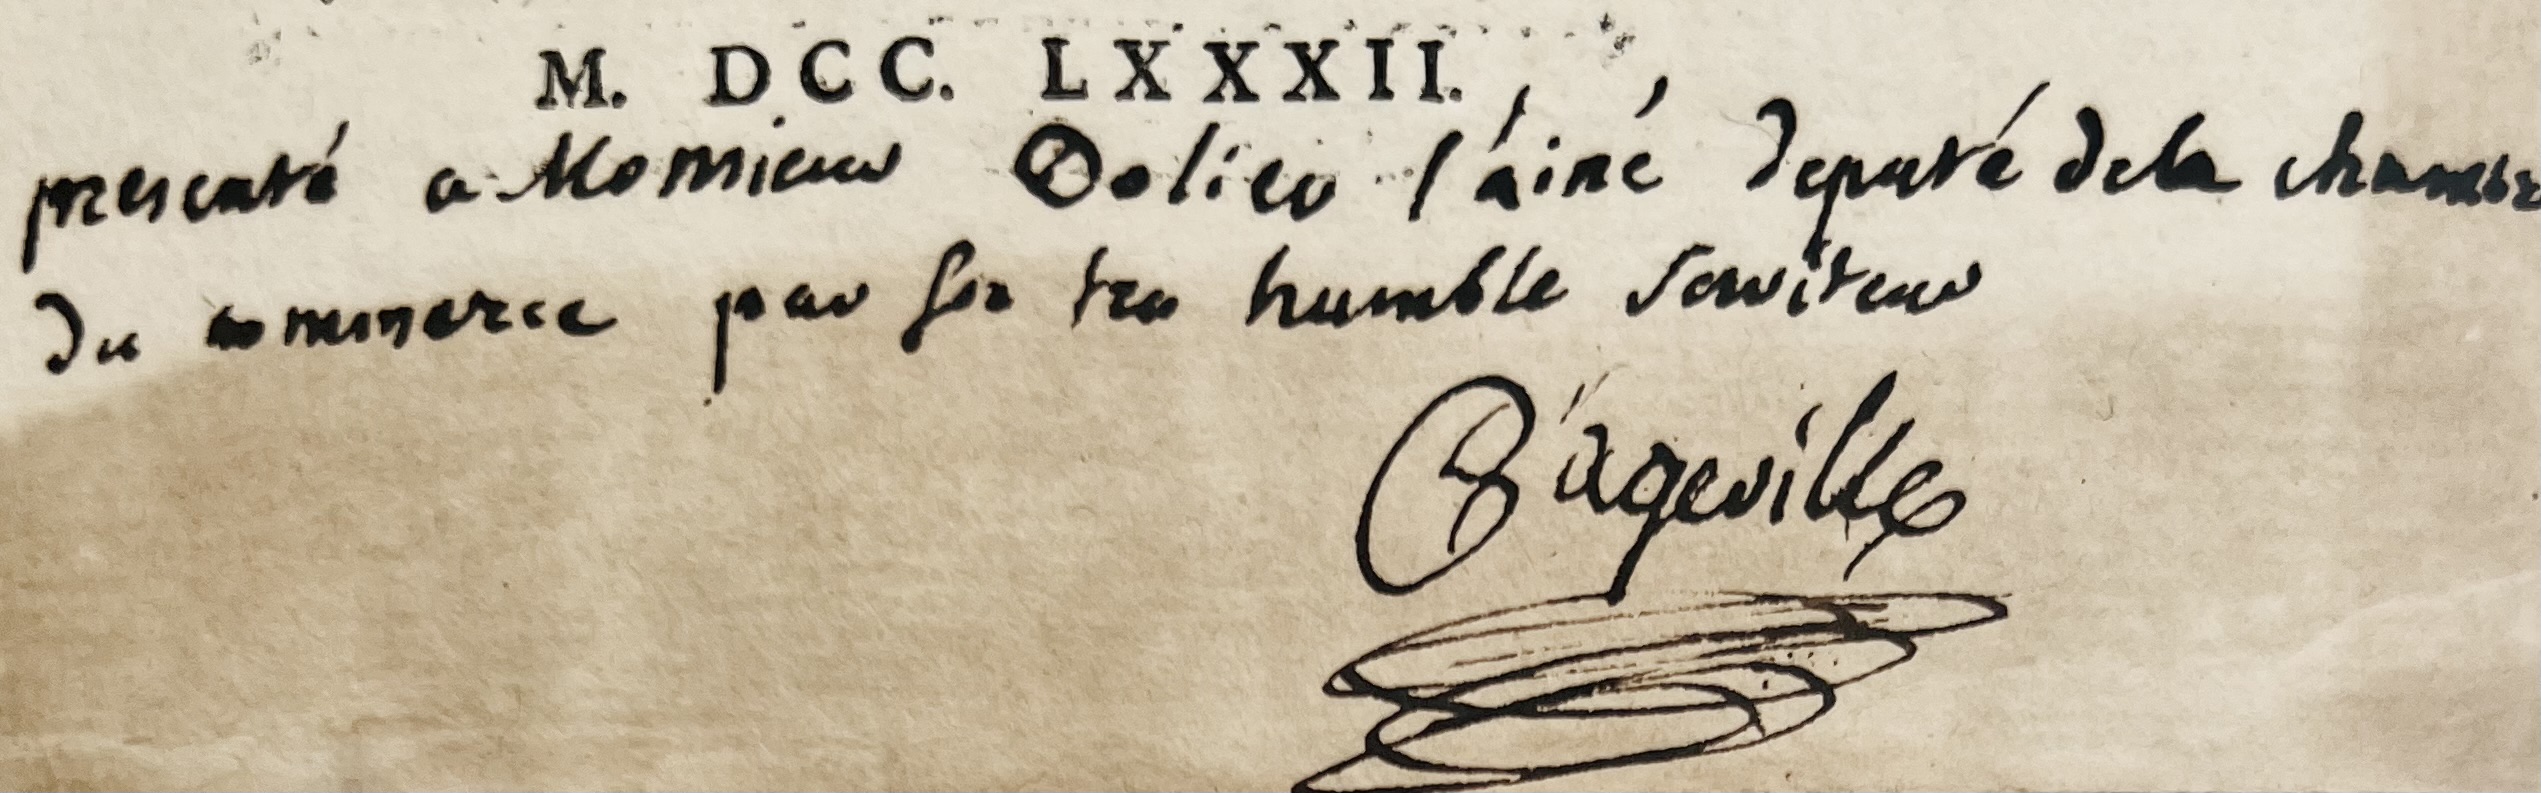 M. DCC. LXXXII.
presenté a Monsieur Dolieu l'ainé deputé dela chambre
du commerce par son tres humble serviteur
Bageville